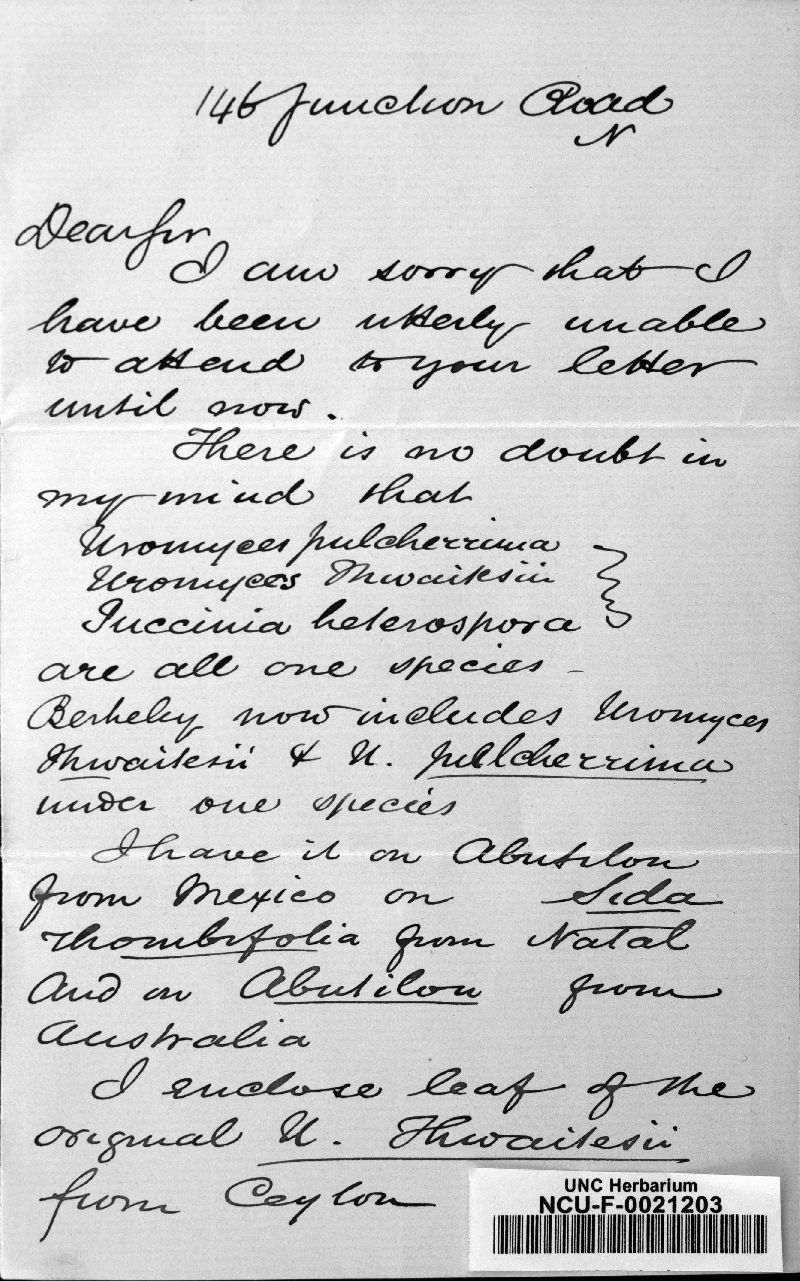 146 Junction Road
N
Dear Sir
I am sorry that I
have been utterly unable
to attend to your letter
until now.
There is no doubt in
my mind that
Uromyces pulcherrima
Uromyces Thwaitesii
Puccinia heterospora
are all one species -
Berkeley now includes Uromyces
Thwaitesii & U. pulcherrima
under one species
I have it on Abutilon
from Mexico on Sida
rhombifolia from Natal
And on Abutilon from
Australia
I enclose leaf of the
original U. Thwaitesii
from Ceylon
UNC Herbarium
NCU-F-0021203